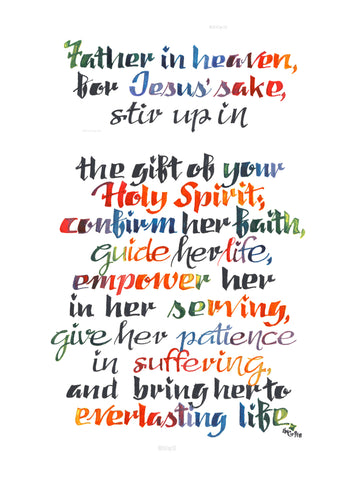 Father in heaven,
for Jesus' sake,
stir up in
the gift of your
Holy Spirit;
confirm her faith,
guide her life,
empower her
in her serving,
give her patience
in suffering,
and bring her to
everlasting life.